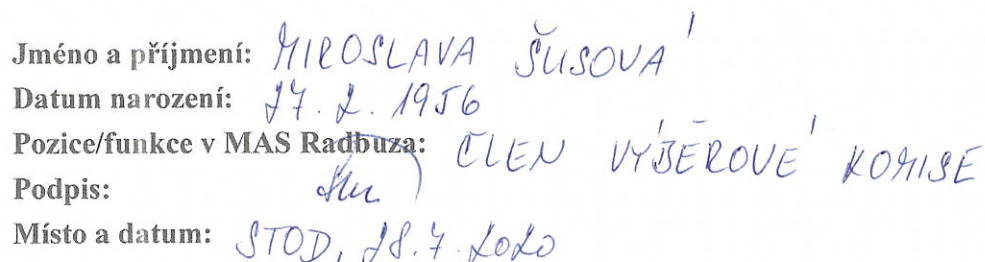 Jméno a příjmení: MIROSLAVA ŠUSOVÁ
Datum narození: 27. 2. 1956
Pozice/funkce v MAS Radbuza: ČLEN VÝBĚROVÉ KOMISE
Podpis:
Místo a datum: STOD, 28.7.2020